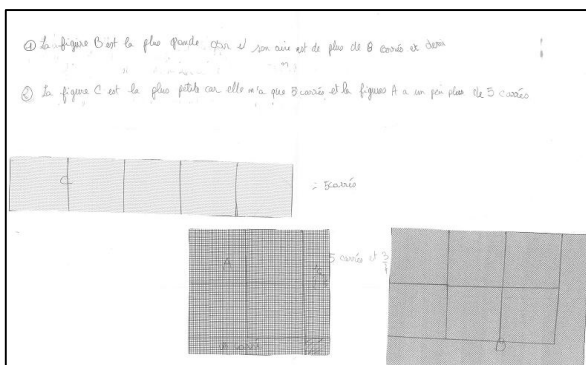 ① La figure B est la plus grande car son aire est de plus de 6 carrés et demi
② La figure C est la plus petite car elle n'a que 5 carrés et la figures A a un peu plus de 5 carrés
C
= 5 carrés
A
5 carrés et 3/4